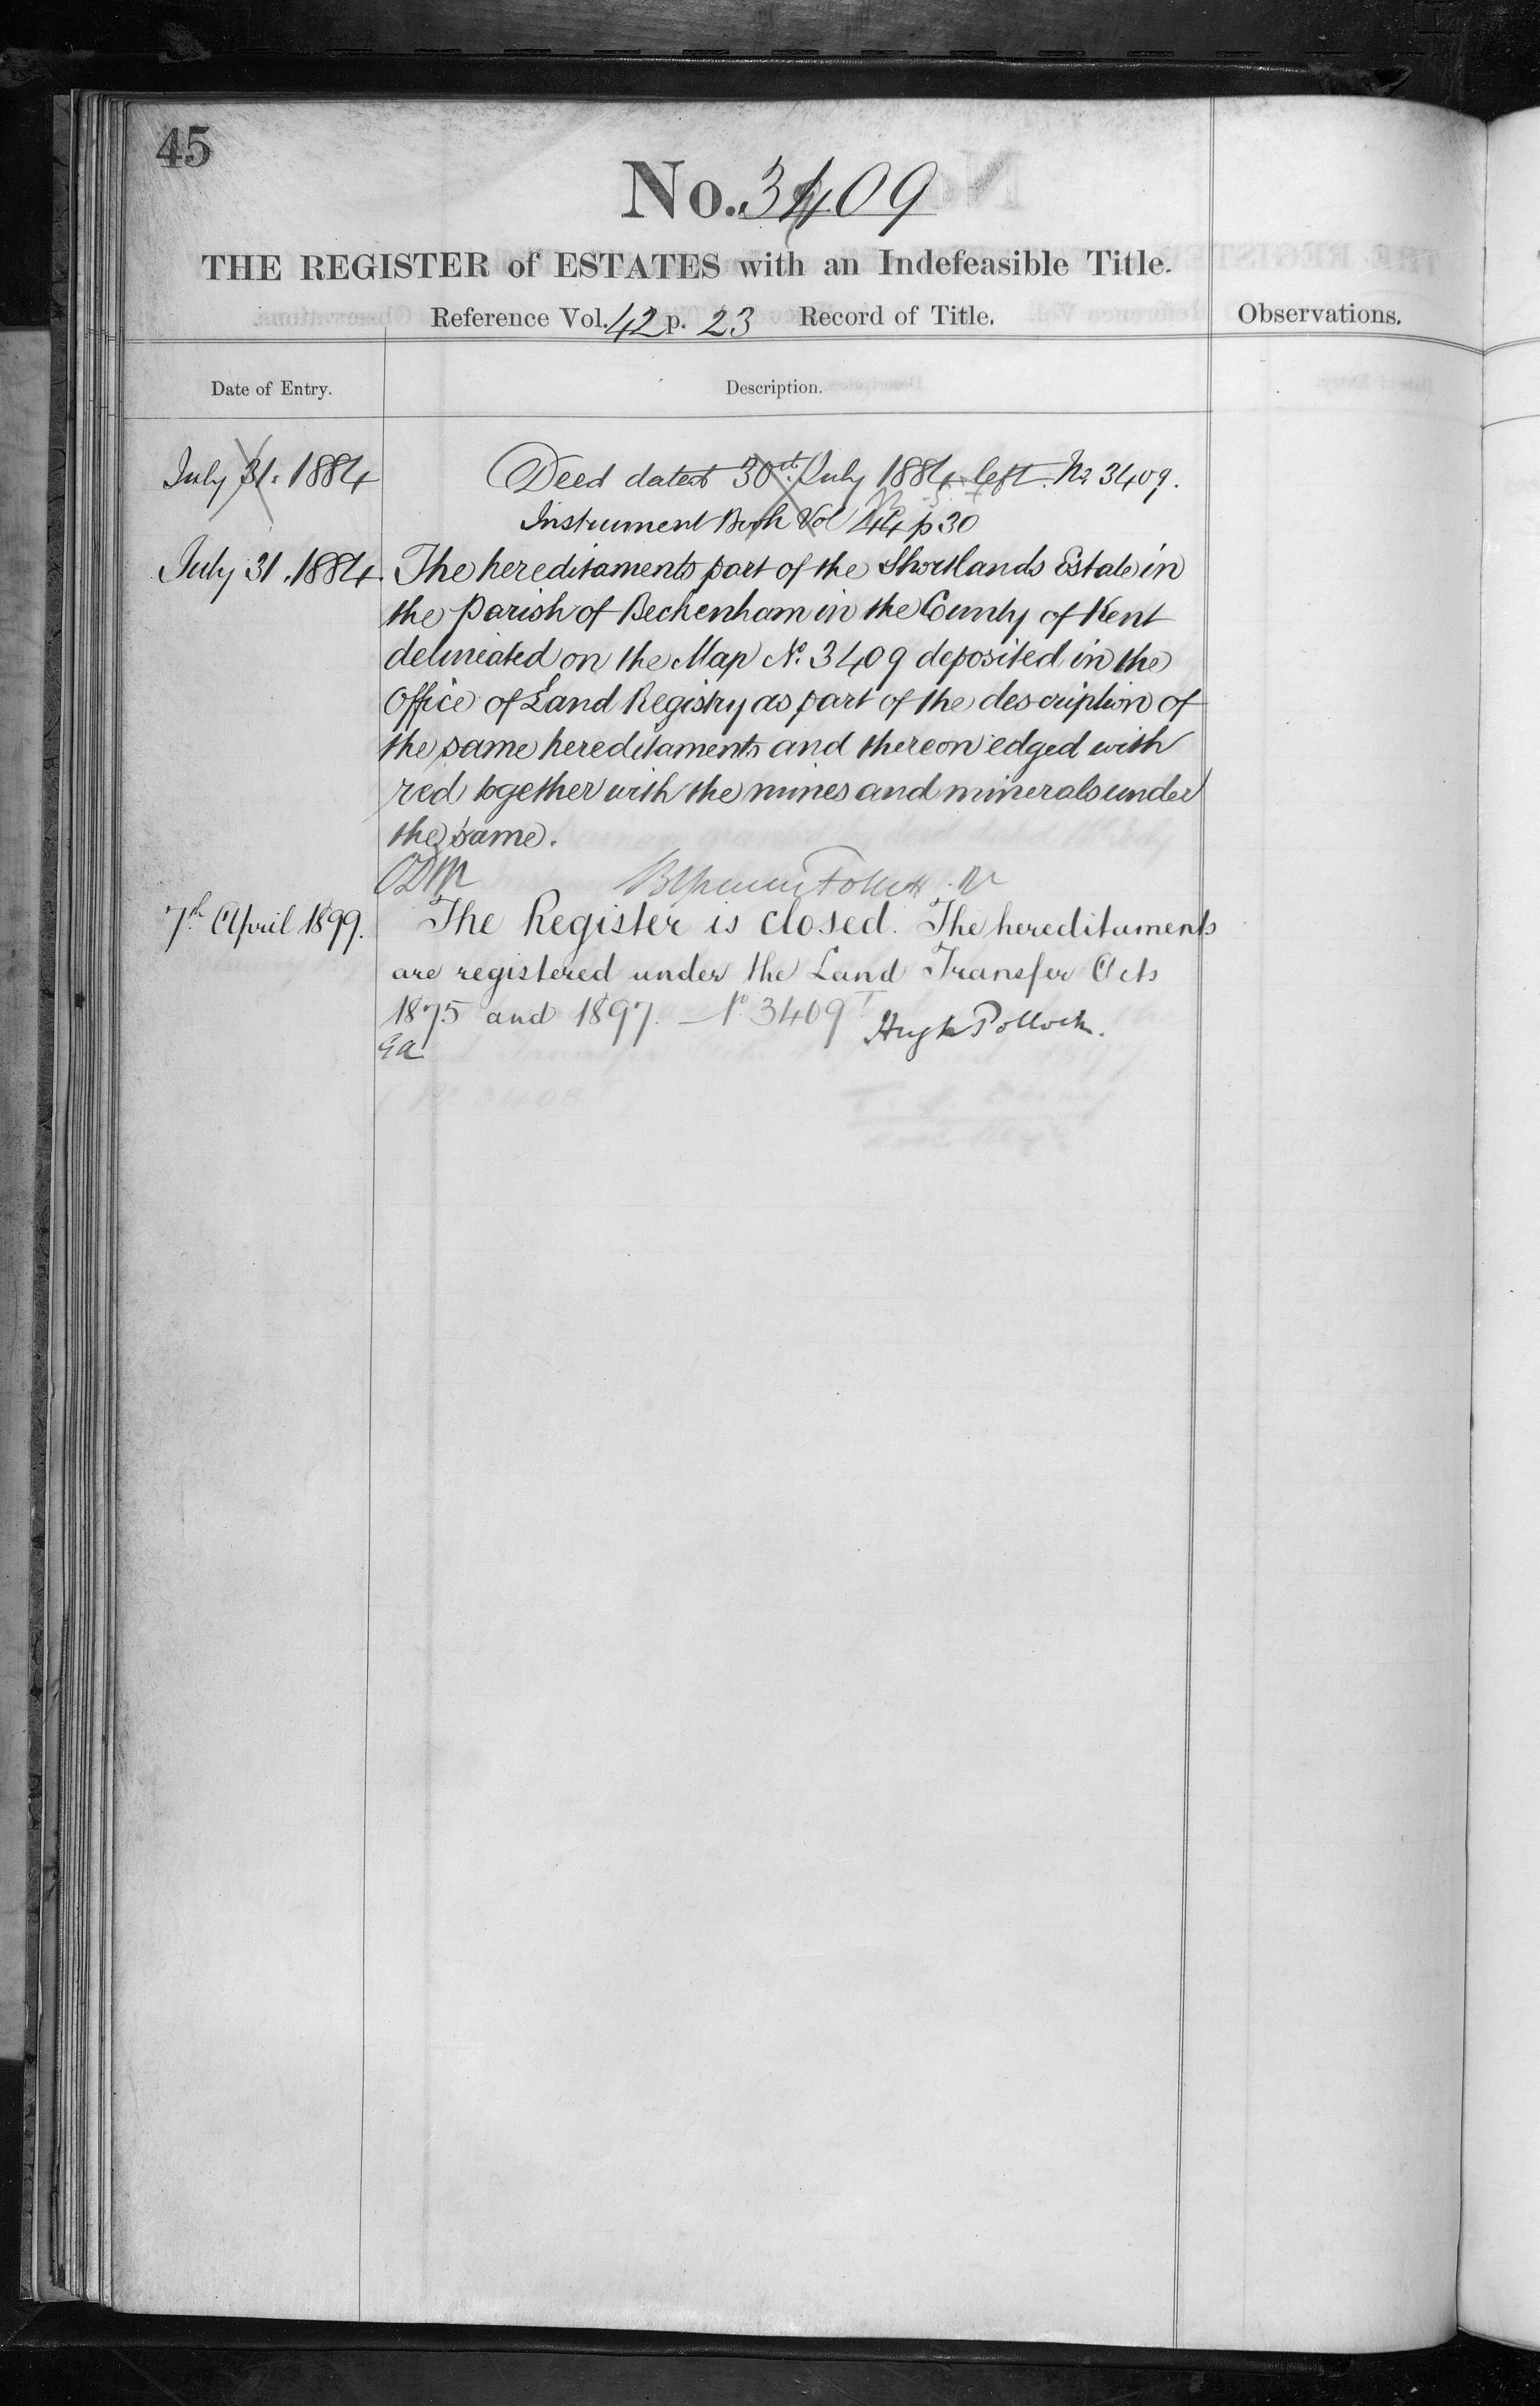 45
No. 3409
THE REGISTER of ESTATES with an Indefeasible Title.
Reference Vol. 42 p. 23 Record of Title.
Observations.
Date of Entry.
Description.
July 31. 1884
Deed dated 30th July 1884 left No. 3409.
Instrument Book Vol 44 p 30
July 31. 1884.
The hereditaments part of the Shortlands Estate in
the Parish of Beckenham in the County of Kent
delineated on the Map No. 3409 deposited in the
Office of Land Registry as part of the description of
the same hereditaments and thereon edged with
red together with the mines and minerals under
the same.
7th April 1899.
The Register is closed. The hereditaments
are registered under the Land Transfer Acts
1875 and 1897. No 3409
Hugh Pollock.